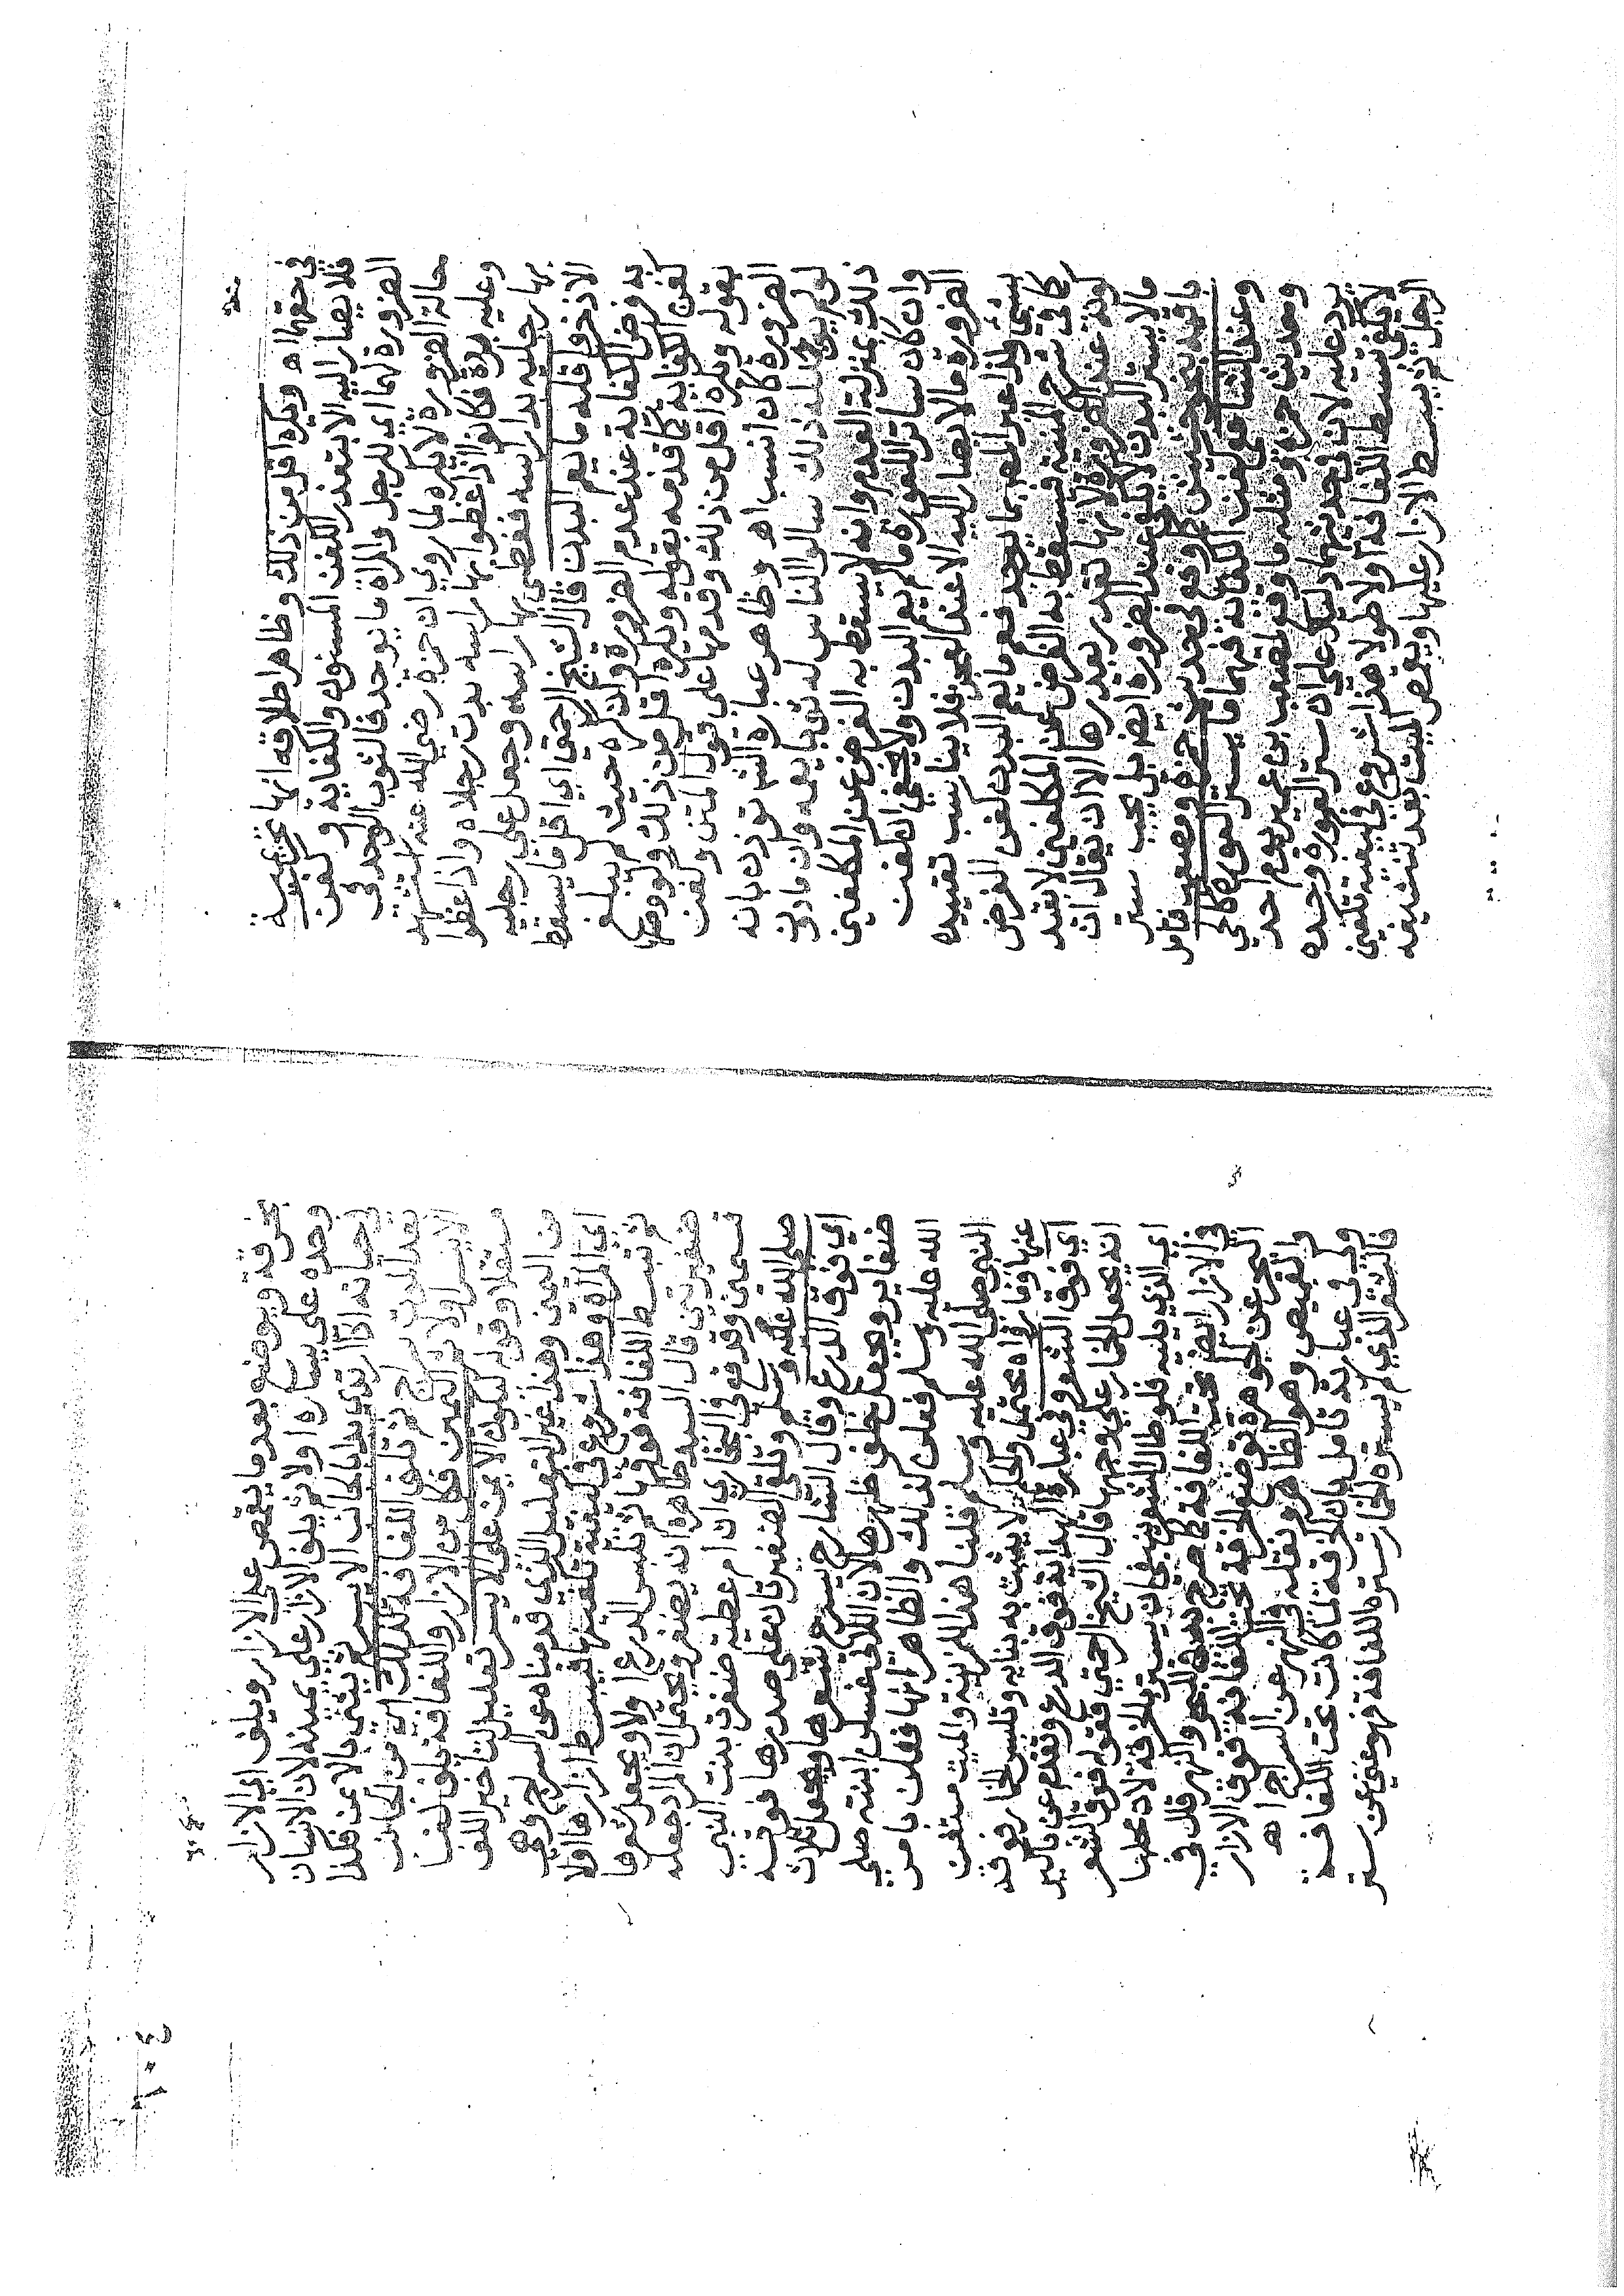 في حقها اه ويكره اقل من ذلك وظاهر اطلاقه انها تحريمية
فلا يصار اليه الا بتعذر الكفن المسنون والكفاية وكفن
الضرورة لهما اي للرجل والمراة ما يوجد فالثوب الواحد في
حالة الضرورة لا يكره لما روي ان حمزة رضي الله عنه استشهد
وعليه بردة فكانوا اذا غطوا بها راسه بدت رجلاه واذا غطوا
بها رجليه بدا راسه فغطي بها راسه وجعل على رجليه
الاذخر واقله ما يعم البدن قال الشيخ الرحمتي اي اقل ما يسقط
به فرض الكفاية عند عدم الضرورة وان كره حيث لم يبلغ
كفن الكفاية كما قدمه بقوله ويكره اقل من ذلك
بقوله ويكره اقل من ذلك وقدمها على قول المتن وكفن
الضرورة كان انسب اه وظاهر عبارة الشـ تؤذن بانه
لو لم يوجد له ذلك سالوا الناس له ثوبا يعمه وان ما دون
ذلك بمنزلة العدم وانه لا يسقط به الفرض عن المكلفين
وان كان ساترا للعورة ما لم يعم البدن ولا يخفى ان كفن
الضرورة ما لا يصار اليه الا عند العجز فلا يناسب تقييده
بشئ ولذا عبر المص بما يوجد فعم ما يعم البدن كفن الفرض
كما في شرح المنية فيسقط به الفرض عن المكلفين لا بقيد
كونه عند الضرورة لانها تقدر بقدرها الا ان يقال ان
ما لا يستر البدن لا يكفي عند الضرورة ايضا بل يجب ستر
باقيه بنحو حشيش كما وقع في حديث حمزة ومصعب فتامل
وعند الشافعي كفن الكفاية فيهما ما يستر العورة كالحي
وحديث حمزة ومثله ما وقع لمصعب بن عمير يوم احد
يرد عليه لان في حديثهما دليلا على ان ستر العورة وحده
لا يكفي تبسط اللفافة اولا طولا هذا شروع في كيفية تكفين
الرجل ثم يبسط الازار عليها ويقمص الميت بعد تنشيفه
خرقة ويوضع بعد ما يقمص على الازار ويلف اي الازار
وحده على يساره اولا ثم يلف الازار على يمينه لان الانسان
في حياته اذا ارتدى بدا بالجانب الايسر ثم يثني بالايمن فكذا
بعد الموت سراج ثم تلف اللفافة كذلك اي من الجانب
الايسر اولا ثم اليمين فكل من الازار والمفافة يلف لفنا
مستقلا وقوله ليكون الايمن على الايسر تعليل لتاخير اللف
من اليمين وهذا عين التعليل الذي قدمناه عن السراج وهي
اي المراة وهذا شروع في كيفية تكفينها فيبسط ازارها اولا
ثم تبسط اللفافة فوقها ثم تلبس الدرع اولا ويجعل شعرها
ضفيرتين قال السيد ظاهره انه يضفر ويحتمل ان المراد جعله
قسمين وقد وقع في البخاري ان ام عطية ضفرت بنت النبي
صلى الله عليه وسلم وتلقى الضفيرتان على صدرها فوقه
اي فوق الدرع وقال الشارح يسرح شعرها ويجعل ثلاث
ضفاير ويجعل خلف ظهرها لان اللاتي غسلن ابنته صلى
الله عليه وسلم فعلن كذلك والظاهر انها فعلن بامر
النبي صلى الله عليه وسلم قلنا هذا للزينة والميت مستغن
عنها وما رواه محتمل والحكم لا يثبت به نهايه وتلبس الخمار فوقه
اي فوق الشعر وفي عبارة الهداية فوق الدرع وتقدم عن ملاكير
انه يجعل الخمار على وجهها قال الشيخ الرحمتي فقوله فوق الشعر
اي الذي يليه فلو طال الشعر ينبغي ان يستر بالخرقة لا دخلها
في الازار ايضا تحت اللفافة كما صرح به في البحر والنهر قلت في
البحر عن الجوهرة توضع الخرقة تحت اللفافة فوق الازار
والقميص وهو الظاهر ونقله في النهر عن السراج اه
وفي عبارته تامل بان الخرقة لما كانت تحت اللفافة
فالشعر الذي لم يستره الخمار سترة اللفافة فهو غني عن ستر